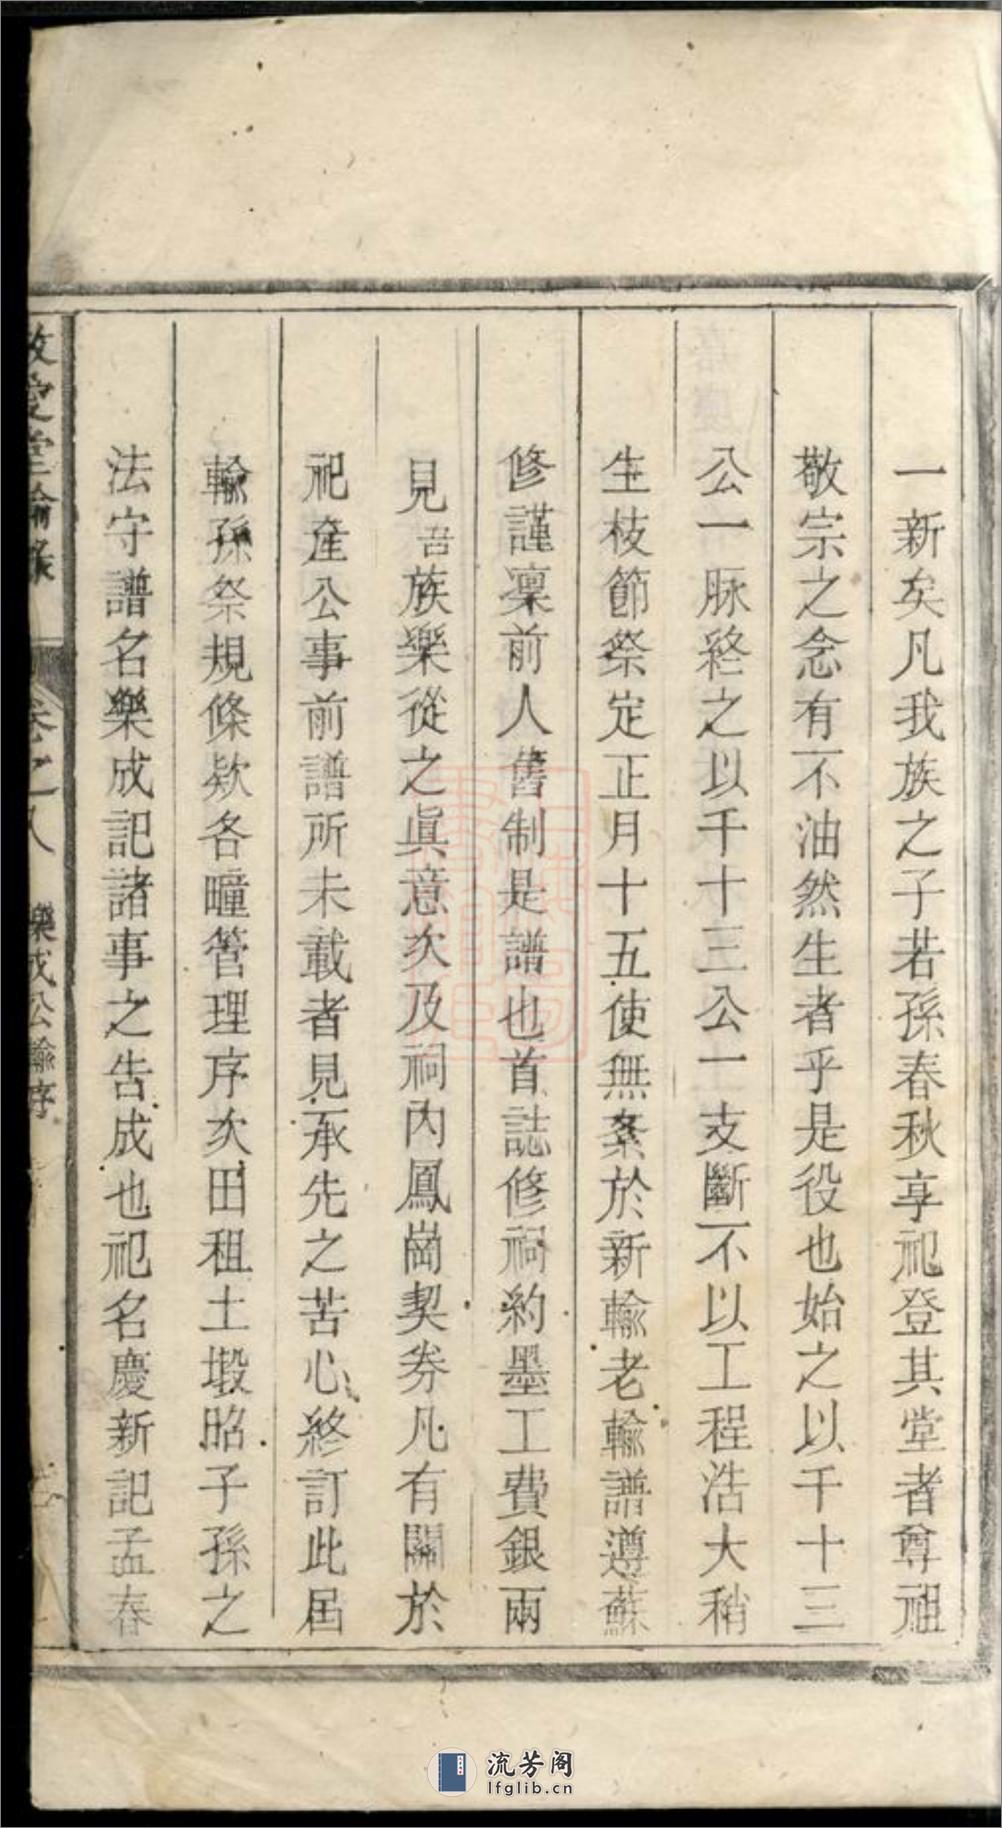 一新矣凡我族之子若孫春秋享祀登其堂者尊祖
敬宗之念有不油然生者乎是役也始之以千十三
公一脉終之以千十三公一支斷不以工程浩大稍
生枝節祭定正月十五使無紊於新輸老輸譜遵蘇
修謹凜前人舊制是譜也首誌修祠約墨工費銀兩
見吾族樂從之眞意次及祠內鳳崗契券凡有關於
祀產公事前譜所未載者見承先之苦心終訂此届
輸孫祭規條欵各疃管理序次田租土塅昭子孫之
法守譜名樂成記諸事之告成也祀名慶新記孟春
愛堂輸
卷之八
樂成公輸序
流芳阁
lfglib.cn